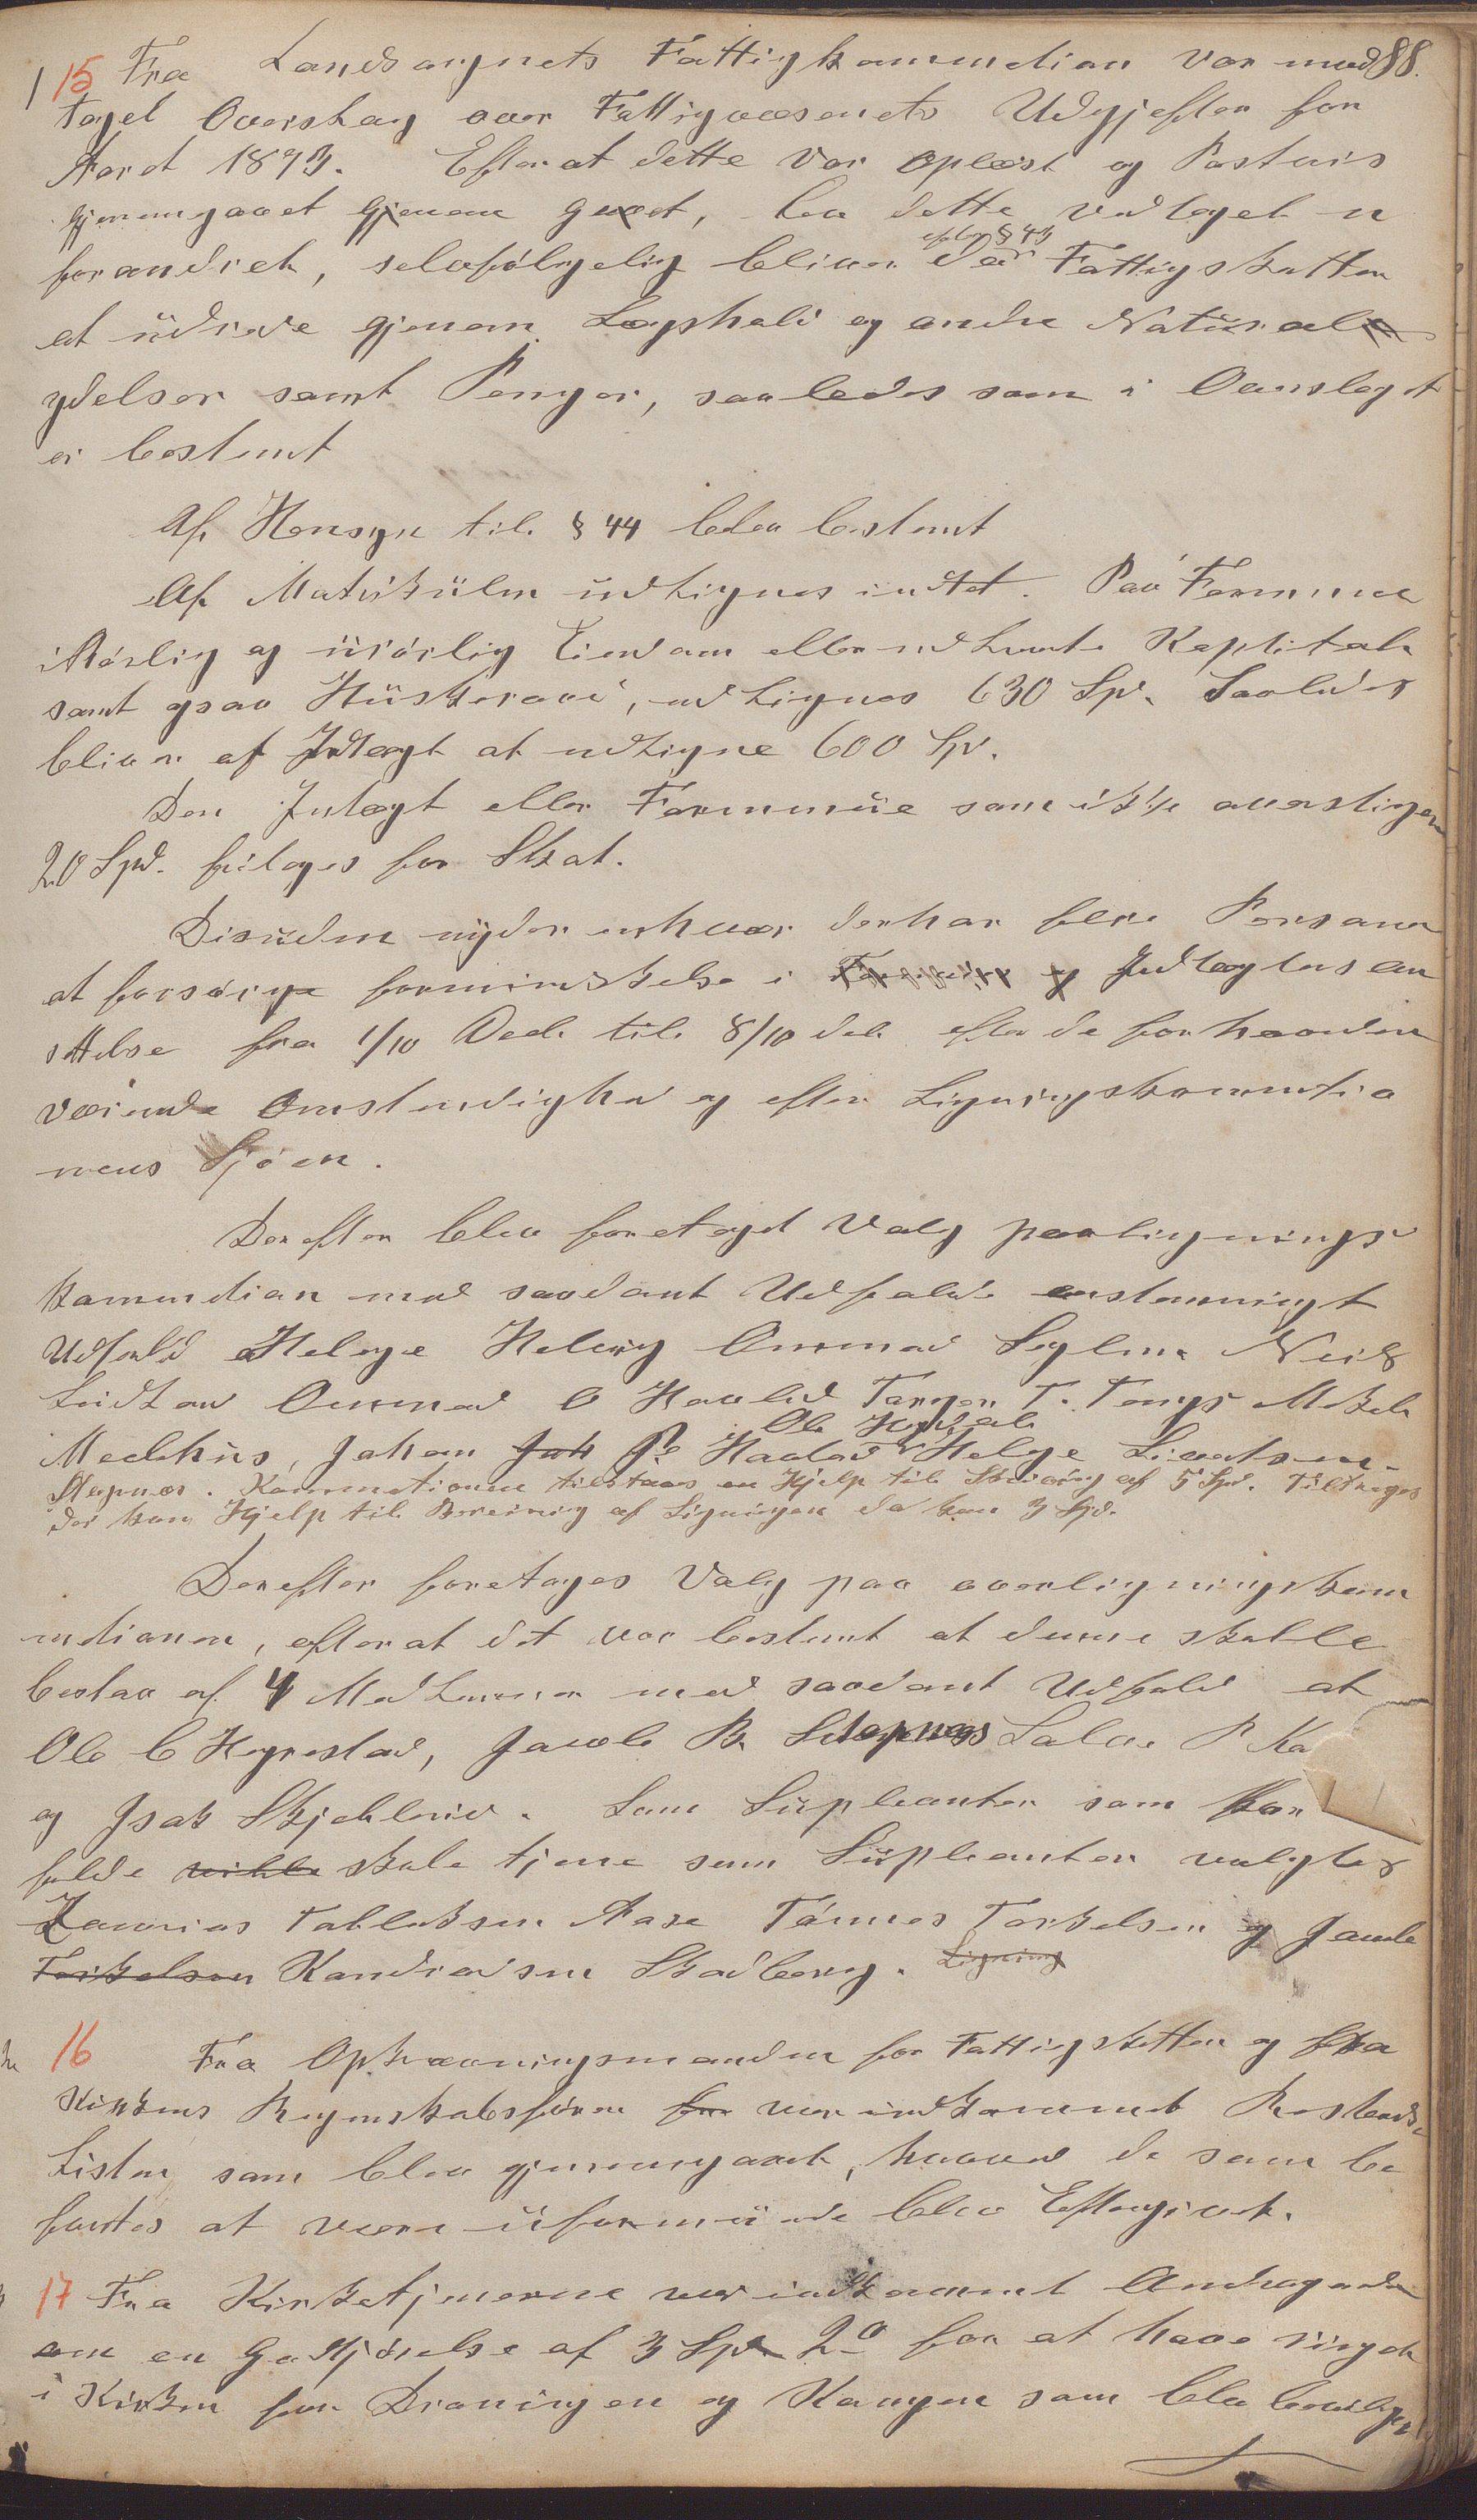 88.
15 Fra Landsognets Fattigkommedion var mod
taget Overslag over Fattigvæsenets Udgjefter for
Aaret 1873. Efterat dette var oplæst og Postvis
gjennemgaaet gjenem gaaet, blev dette vedtaget u
forandret, selvfølgelig bliver efter § 43 der Fattigskatten
at udrede gjenem Lægshold og andre Natural
ydelser samt Penger, saaledes som i Overslaget
er bestemt
Af Hensyn til § 44 blev bestemt
Af Matrikulen udlignes indtet. Paa Formue
i Rørlig og urørlig Eiendom eller udlaante Kapital
samt ogsaa Huskeraad, udlignes 630 Spd. Saaledes
bliver af Indtegt at udligne 600 Spd.
Den Intægt eller Formue som ikke overstiger
20 Spd. fritages for Skat.
Desuden nyder enhver der har flere Personer
at forsørge forminskelse i Indtægtens an
settelse fra 1/10 Deel til 8/10 del efter de forhaanden
værende Omstendighed og efter Ligningskommetio
nens Skjøn.
Derefter blev foretaget Valg paa lignings
kommetion med saadant Udfald enstemmigt
Udfald Helge Helvig Ommund Seglem Neils
Lædre Ommund O Haaland Torger T. Tengs Mikel
Mechus, Johan Joh P Haaland Ole Hovland Helge Livertsen
Stapnes. Kommetionen tilstaaes en Hjelp til Skrivning af 5 Spd. Tiltrenges
der kun Hjelp til Renskrivning af Ligningen da kun 3 Spd.
Derefter foretages Valg paa overligningskom
metionen, efterat det var bestemt at denne skulle
bestaa af 4 Medlemmer med saadant Udfald at
Ole C Hegrestad, Jacob B. Stapnes Salve P Ka
og Isak Skjebled. Som Supleanter som for
falde vilde skule tjene som Supleanter valgtes
Zacarias Tollaksen Aase Tønnes Torkelsen og Jacob
Torkelsen Konradsen Skadberg. Ligning
16 Fra Opkrævningsmanden for Fattigskatten og fra
Kirkens Regenskabsfører for var indkommet Restands
Listen, som blev gjennemgaaet, hvorved de som be
fantes at være uformuende blev Eftergivet.
17 Fra Kirketjenerne var indkommet Andragende
om en Godtjørelse af 3 Spd 2 ort for at have ringet
i Kirken for Dronningen og Kongen som blev bevilget